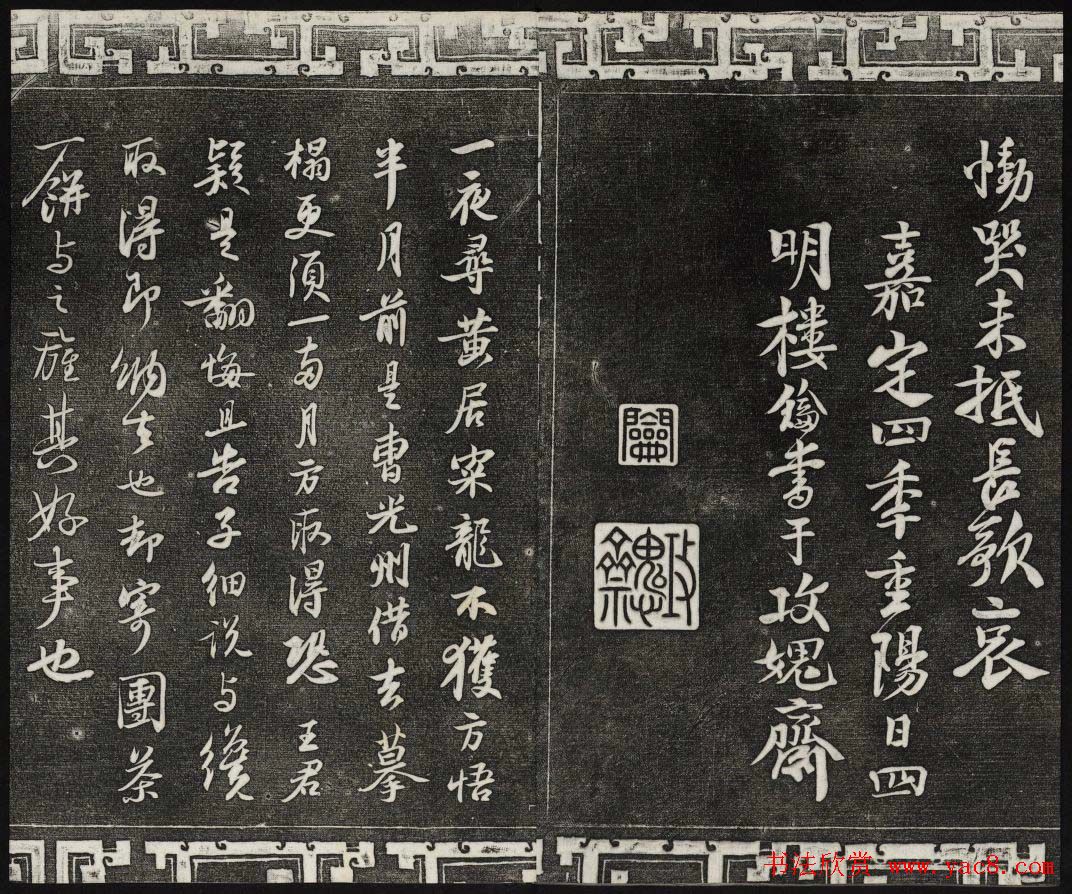 慟哭未抵長歌哀
嘉定四季重陽日四
明樓鑰書于攻媿齋
攻媿齋
一夜尋黃居寀龍不獲方悟
半月前是曹光州借去摹
榻更須一兩月方取得恐王君
疑是翻悔且告子細說与纔
取得即納去也却寄團茶
一餅与之旌其好事也
书法欣赏 www.yac8.com